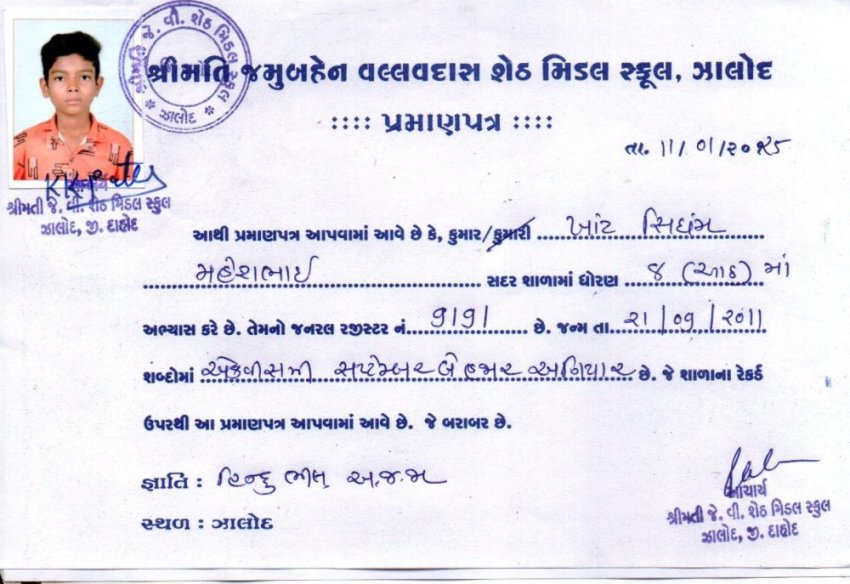 શ્રીમતિ જે. વી. શેઠ મિડલ સ્કૂલ
* ઝાલોદ *
શ્રીમતિ જમુબહેન વલ્લવદાસ શેઠ મિડલ સ્કૂલ, ઝાલોદ
:::: પ્રમાણપત્ર ::::
તા. 11/01/2025
આચાર્ય
શ્રીમતી જે. વી. શેઠ મિડલ સ્કુલ
ઝાલોદ, જી. દાહોદ
આથી પ્રમાણપત્ર આપવામાં આવે છે કે, કુમાર/કુમારી ખાંટ સિધ્ધમ
મહેશભાઈ સદર શાળામાં ધોરણ ૮ (આઠ) માં
અભ્યાસ કરે છે. તેમનો જનરલ રજીસ્ટર નં. 9191 છે. જન્મ તા. ૨1/09/2011
શબ્દોમાં એકવીસમી સપ્ટેમ્બર બે હજાર અગિયાર છે. જે શાળાના રેકર્ડ
ઉપરથી આ પ્રમાણપત્ર આપવામાં આવે છે. જે બરાબર છે.
જ્ઞાતિ : હિન્દુ ભીલ અ.જ.જા
સ્થળ : ઝાલોદ
આચાર્ય
શ્રીમતી જે. વી. શેઠ મિડલ સ્કુલ
ઝાલોદ, જી. દાહોદ